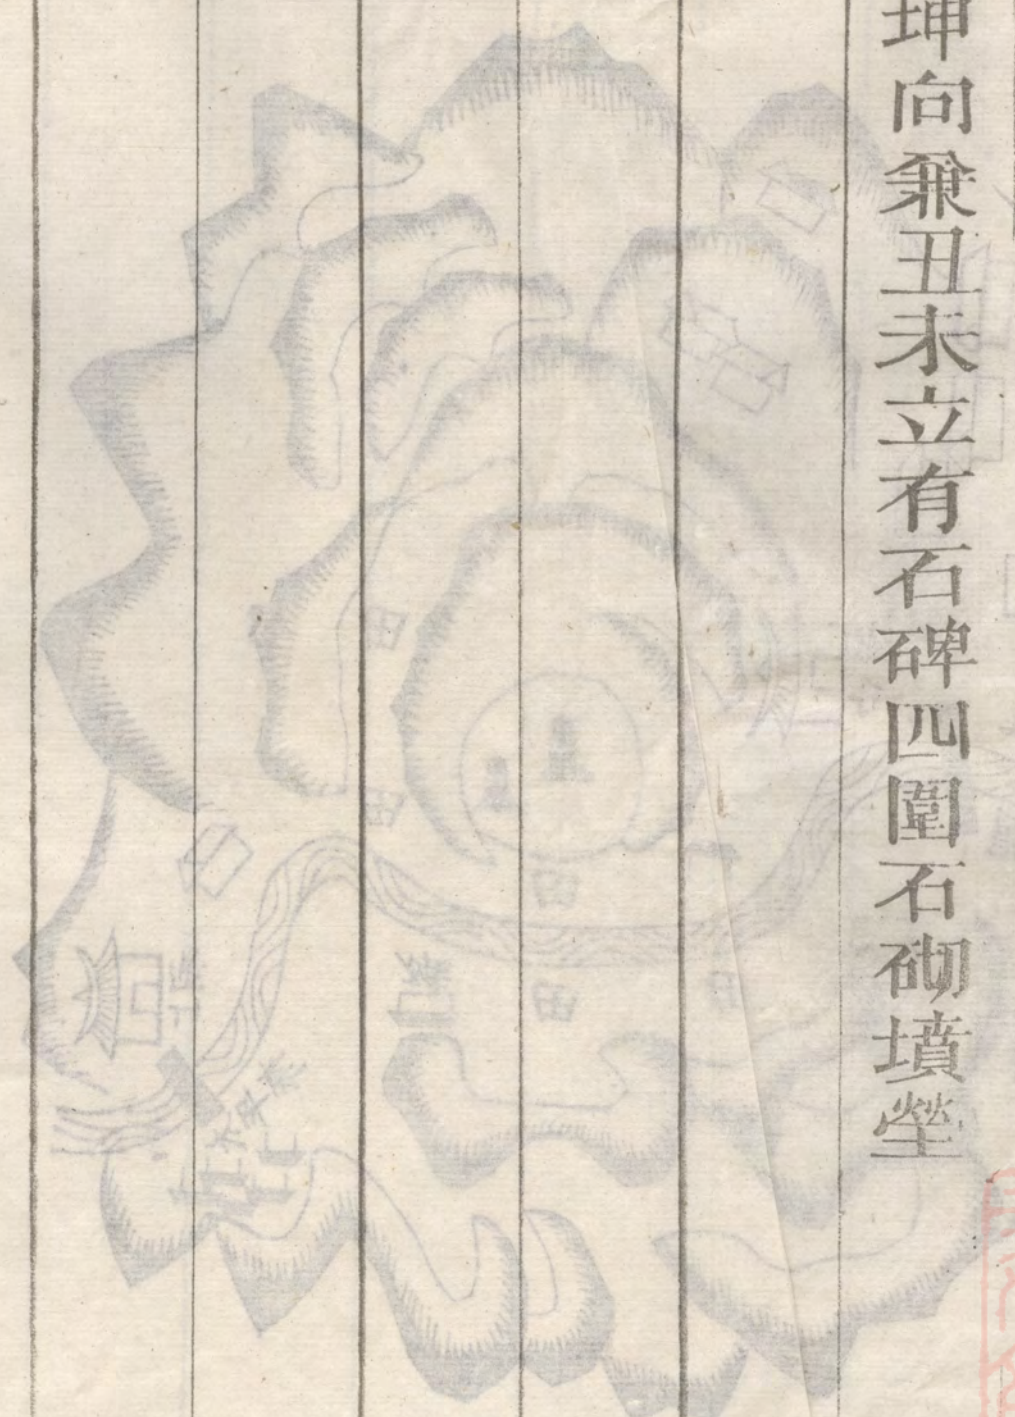 坤向兼丑未立有石碑四圍石砌墳塋